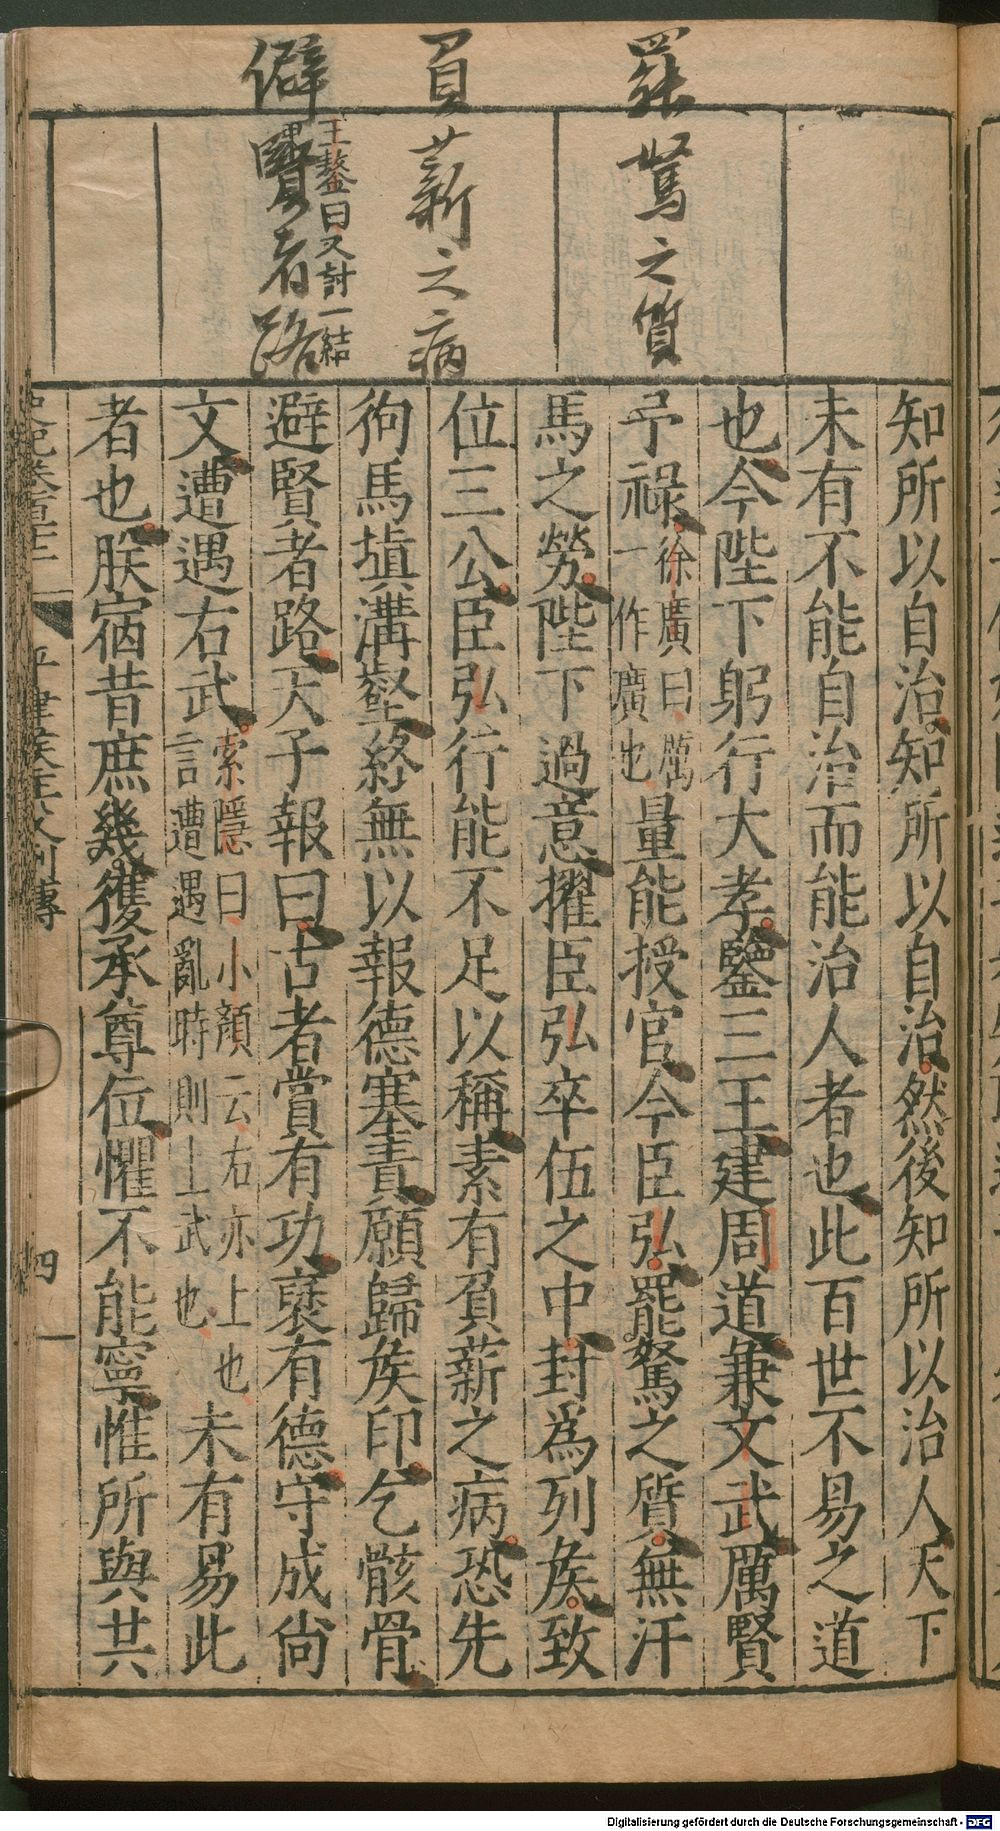 罷駑之質
負薪之病
王鏊曰又討一結
僻賢者路
知所以自治知所以自治然後知所以治人天下
未有不能自治而能治人者也此百世不易之道
也今陛下躬行大孝鑒三王建周道兼文武厲賢
予祿徐廣曰厲一作廣也量能授官今臣弘罷駑之質無汗
馬之勞陛下過意擢臣弘卒伍之中封爲列矦致
位三公臣弘行能不足以稱素有負薪之病恐先
狥馬塡溝壑終無以報德塞責願歸矦印乞骸骨
避賢者路天子報曰古者賞有功襃有德守成尙
文遭遇右武索隱曰小顔云右亦上也言遭遇亂時則上武也未有易此
者也朕宿昔庶幾獲承尊位懼不能寧惟所與共
平津矦主父列傳
四
Digitalisierung gefördert durch die Deutsche Forschungsgemeinschaft - DFG